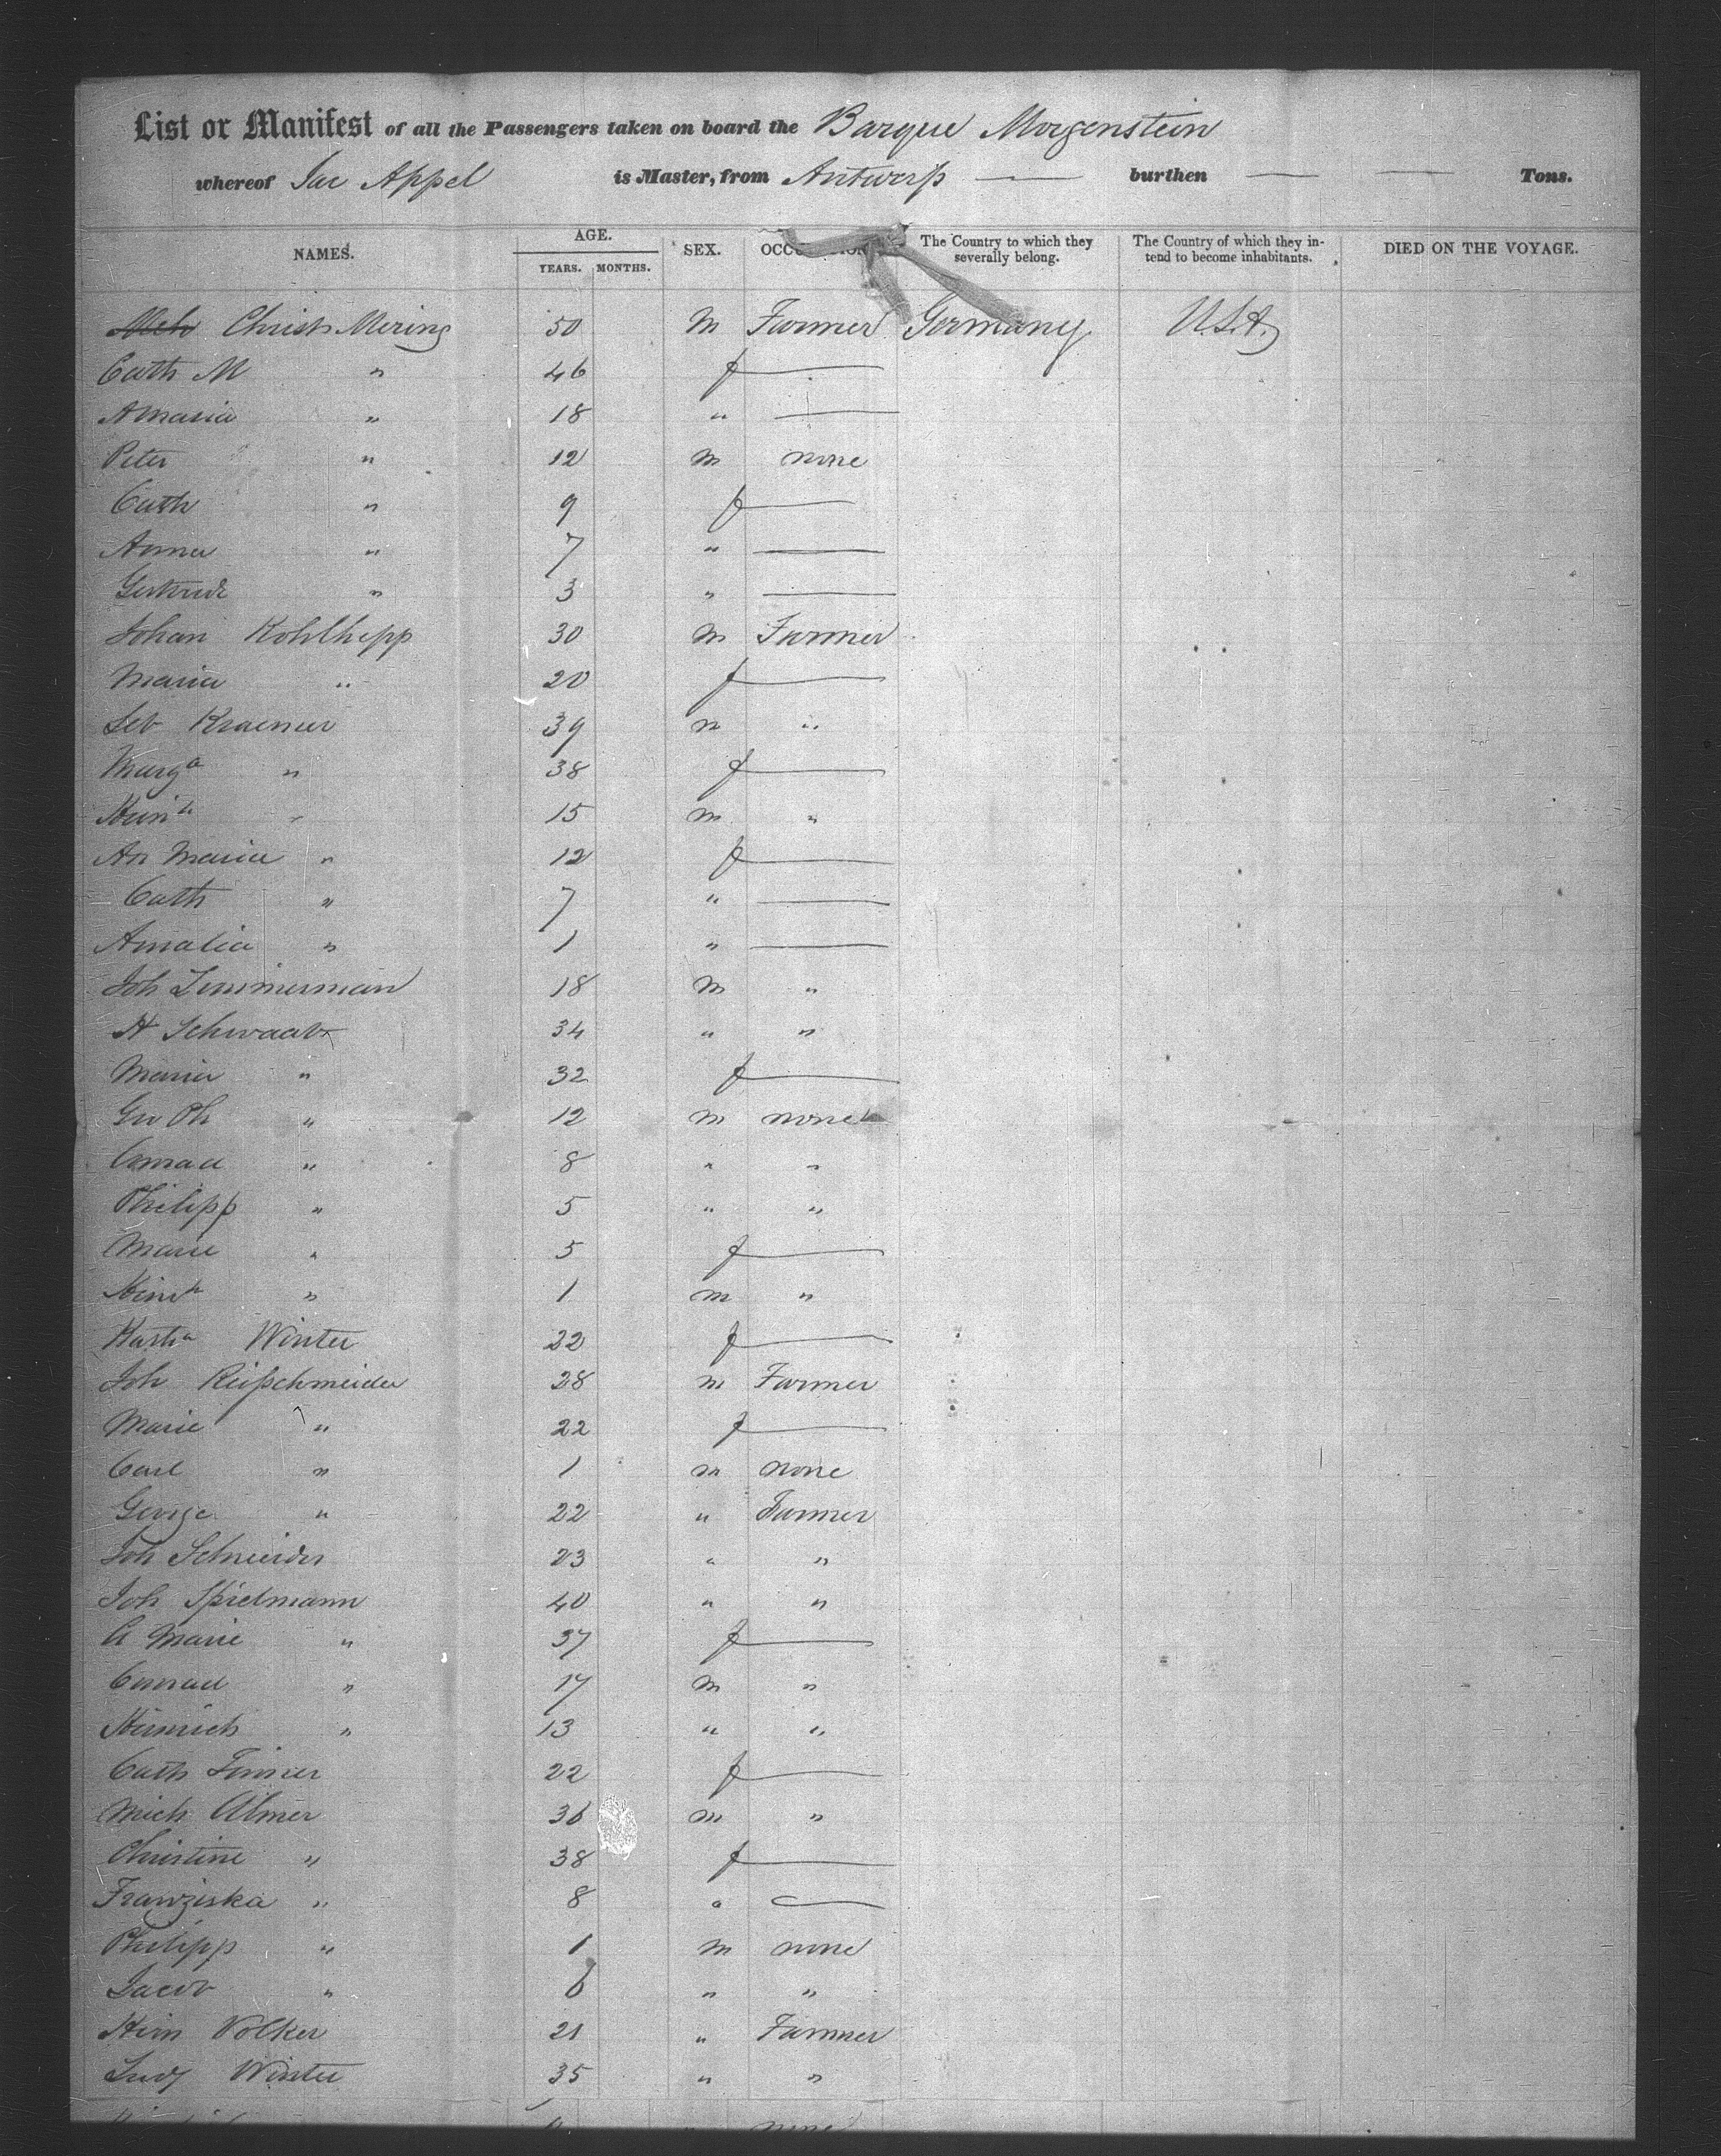 List or Manifest of all the Passengers taken on board the Barque Morgenstein
whereof Jac Appel is Master, from Antwerp — burthen — — Tons.
NAMES. AGE. YEARS. MONTHS. SEX. The Country to which they severally belong. The Country of which they intend to become inhabitants. DIED ON THE VOYAGE.
Christ Mering 50 M Farmer Germany U.S.A.
Cath M " 46 f —
A Maria " 18 " —
Peter " 12 m none
Cath " 9 f —
Anna " 7 " —
Gertrude " 3 " —
Johan Kohlhepp 30 m Farmer
Maria " 20 f —
Seb Kraemer 39 m "
Marga " 38 f —
Heinh " 15 m "
An Maria " 12 f —
Cath " 7 " —
Amalia " 1 " —
Joh Zimmerman 18 m "
H Schwaab 34 " "
Maria " 32 f —
" 12 m none
Conrad " 8 " "
Philipp " 5 " "
Marie " 5 f —
Heinh " 1 m "
Winter 22 f —
Joh Reißchmeider 28 m Farmer
Marie " 22 f —
Carl " 1 m none
George " 22 " Farmer
Joh Schneider 23 " "
Joh Spielmann 40 " "
A Marie " 37 f —
Conrad " 17 m "
Heinrich " 13 " "
Cath 22 f —
Mich Ulmer 36 m "
Christine " 38 f —
Franziska " 8 " —
Philipp " 1 m none
Jacob " 6 " "
Hein Volker 21 " Farmer
Ludg Winter 35 " "
none